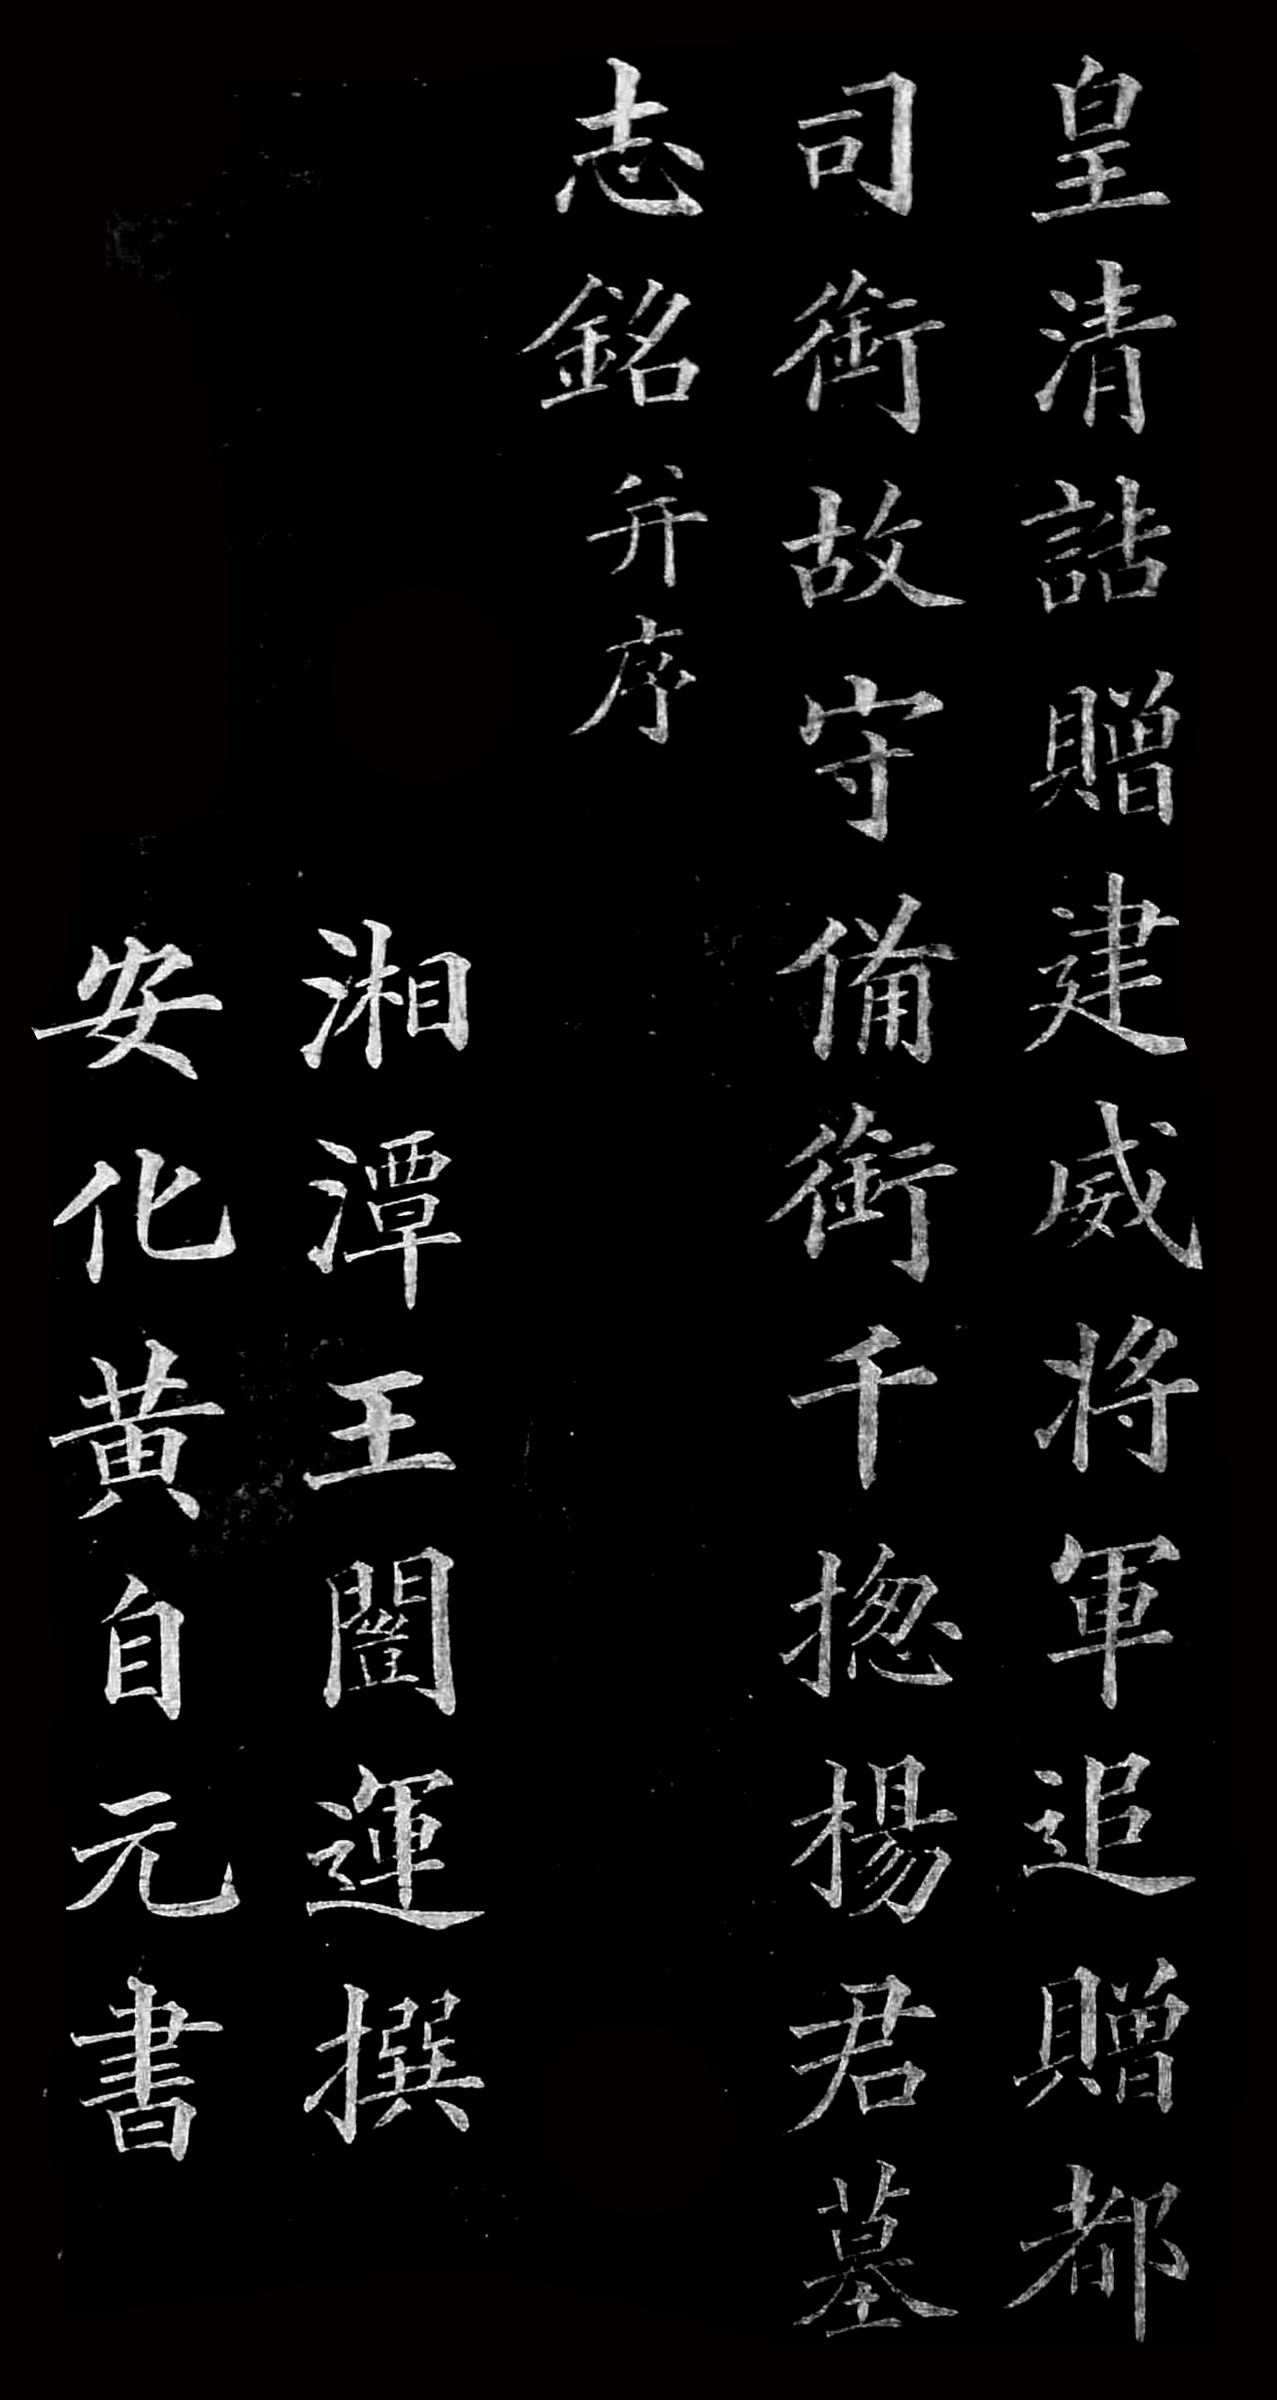 皇清誥贈建威将軍追贈都
司銜故守備銜千揔楊君墓
志銘并序
湘潭王闓運撰
安化黃自元書